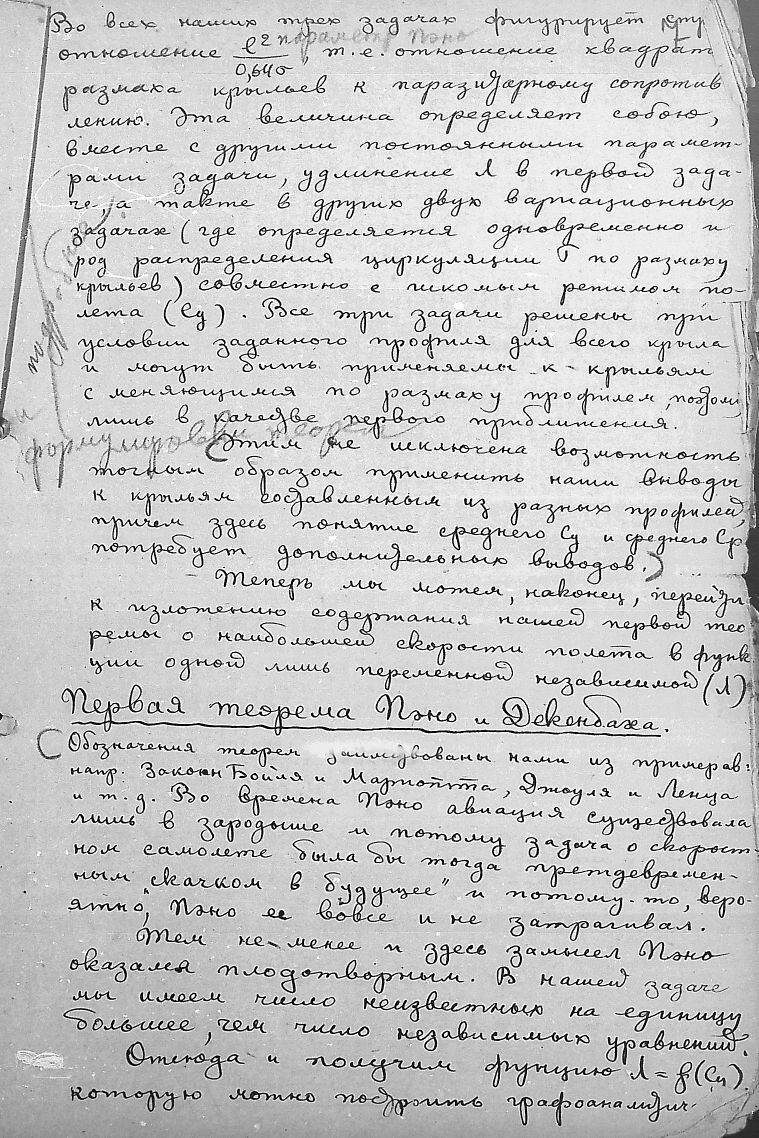 Во всех наших трех задачах фигурирует
отношение l²/0,64σ параметр Пэно, т.е. отношение квадрат
размаха крыльев к паразитарному сопротив
лению. Эта величина определяет собою,
вместе с другими постоянными парамет-
рами задачи, удлинение Λ в первой зада-
че, а также в других двух вариационных
задачах (где определяется одновременно и
род распределения циркуляции Г по размаху
крыльев) совместно с искомым режимом по-
лета (Cy). Все три задачи решены при
условии заданного профиля для всего крыла
и могут быть применяемы к крыльям
с меняющимся по размаху профилем, поэтому,
лишь в качестве первого приближения.
(Этим не исключена возможность
точным образом применить наши выводы
к крыльям составленным из разных профилей,
причем здесь понятие среднего Cy и среднего Cp
потребует дополнительных выводов.)
Теперь мы можем, наконец, перейти
к изложению содержания нашей первой тео
ремы о наибольшей скорости полета в функ
ции одной лишь переменной независимой (Λ)
подробная
формулировка теорем
Первая теорема Пэно и Декенбаха.
(Обозначения теорем заимствованы нами из примеров:
напр. Закон Бойля и Мариотта, Джоуля и Ленца
и т.д. Во времена Пэно авиация существовала
лишь в зародыше и потому задача о скорост-
ном самолете была бы тогда преждевремен-
ным „скачком в будущее" и потому-то, веро-
ятно, Пэно ее вовсе и не затрагивал.
Тем не менее и здесь замысел Пэно
оказался плодотворным. В нашей задаче
мы имеем число неизвестных на единицу
большее, чем число независимых уравнений.
Отсюда и получим фунцию Λ = f(Cy),
которую можно построить графоаналитич-